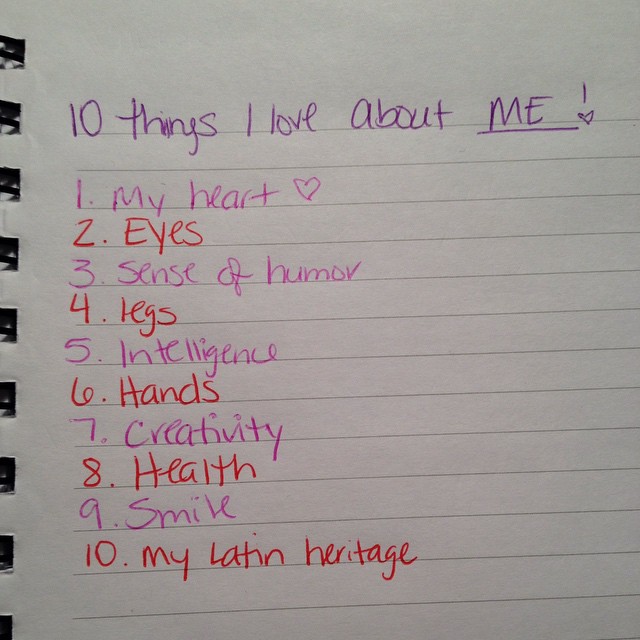 10 things I love about ME!
1. My heart ♡
2. Eyes
3. Sense of humor
4. legs
5. Intelligence
6. Hands
7. Creativity
8. Health
9. Smile
10. my Latin heritage